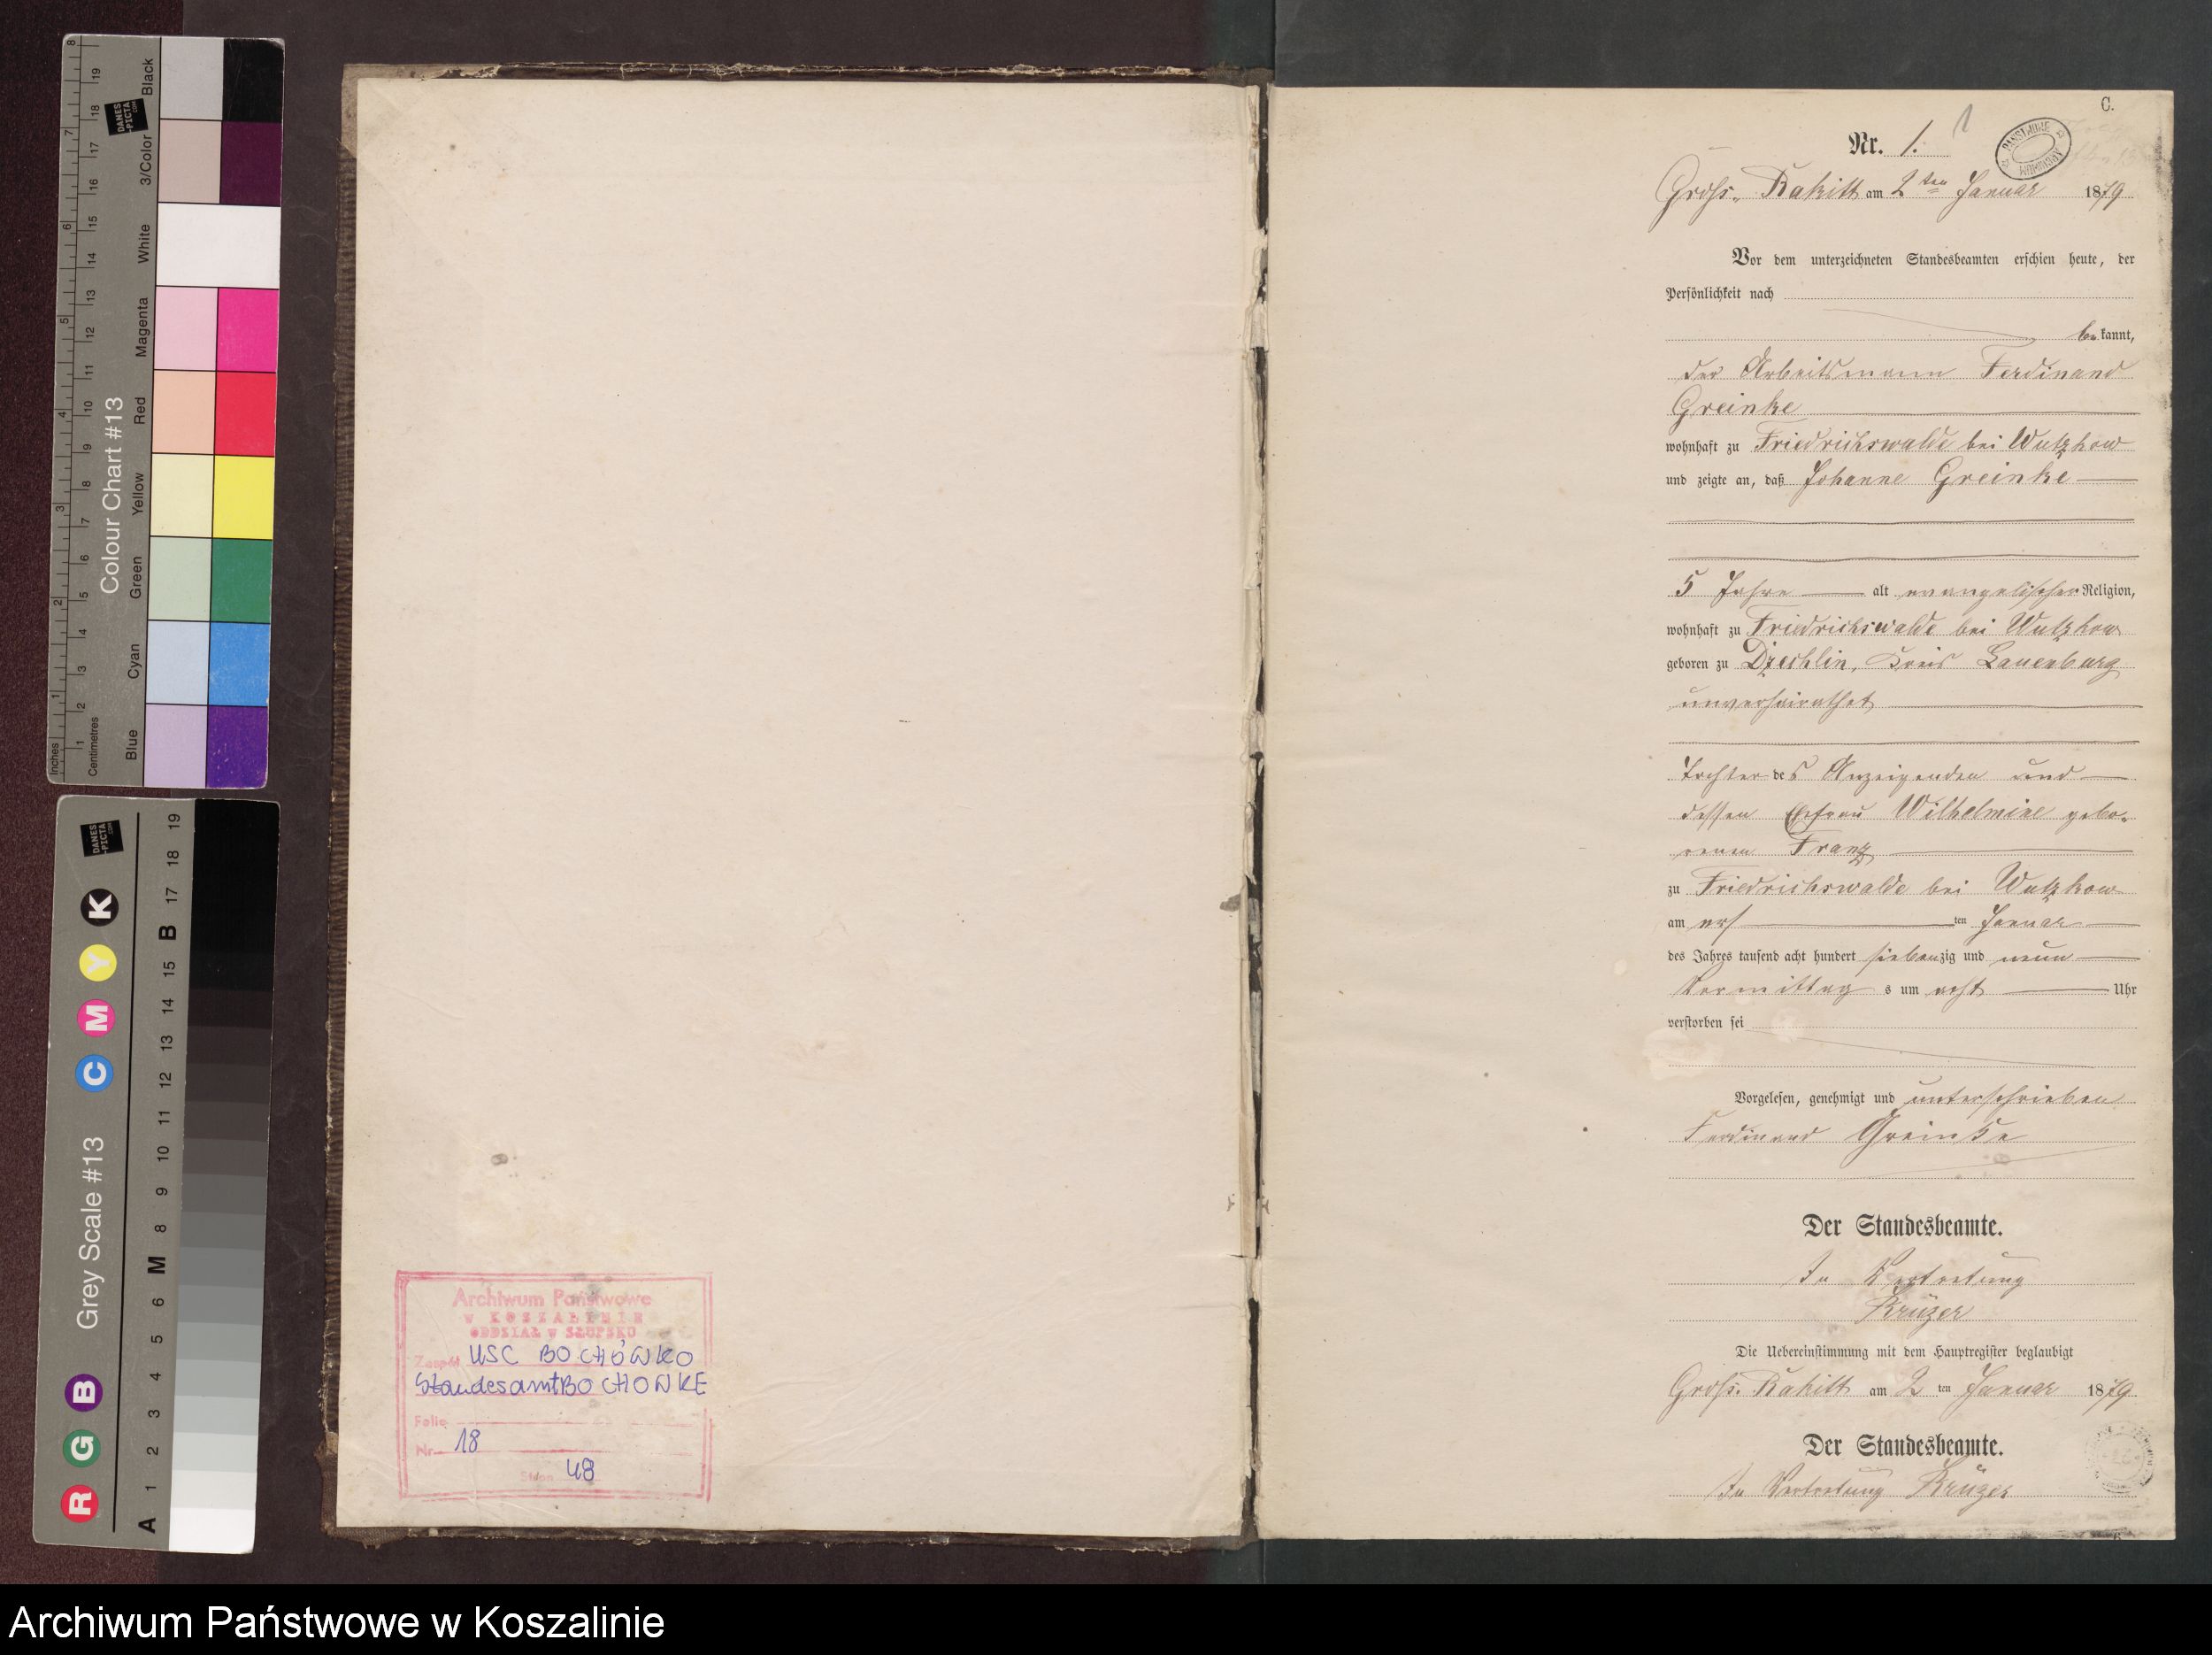 Archiwum Państwowe
w KOSZALINIE
ODDZIAŁ w SŁUPSKU
Zespół USC BOCHÓWKO
Standesamt BOCHOWKE
Nr 18
Stron 48
C.
Nr. 1. 1
PAŃSTWOWE ARCHIWUM
Gross-Rakitt am 2ten Januar 1879
Vor dem unterzeichneten Standesbeamten erschien heute, der
Persönlichkeit nach
bekannt,
der Arbeitsmann Ferdinand
Greinke
wohnhaft zu Friedrichswalde bei Wutzkow
und zeigte an, daß Johanne Greinke
5 Jahre alt evangelischer Religion,
wohnhaft zu Friedrichswalde bei Wutzkow
geboren zu Dzechlin, Kreis Lauenburg
unverheirathet
Tochter des Anzeigenden und
dessen Ehefrau Wilhelmine gebo-
renen Franz
zu Friedrichswalde bei Wutzkow
am ersten Januar
des Jahres tausend acht hundert siebenzig und neun
Vormittags um acht Uhr
verstorben sei
Vorgelesen, genehmigt und unterschrieben
Ferdinand Greinke
Der Standesbeamte.
In Vertretung
Krüger
Die Uebereinstimmung mit dem Hauptregister beglaubigt
Gross-Rakitt am 2ten Januar 1879
Der Standesbeamte.
In Vertretung Krüger
Inches
Centimetres
Colour Chart #13
Blue
Cyan
Green
Yellow
Red
Magenta
White
3/Color
Black
DANES
-PICTA
.COM
Grey Scale #13
R G B C M Y K
A 1 2 3 4 5 6 M 8 9 10 11 12 13 14 15 B 17 18 19
Archiwum Państwowe w Koszalinie